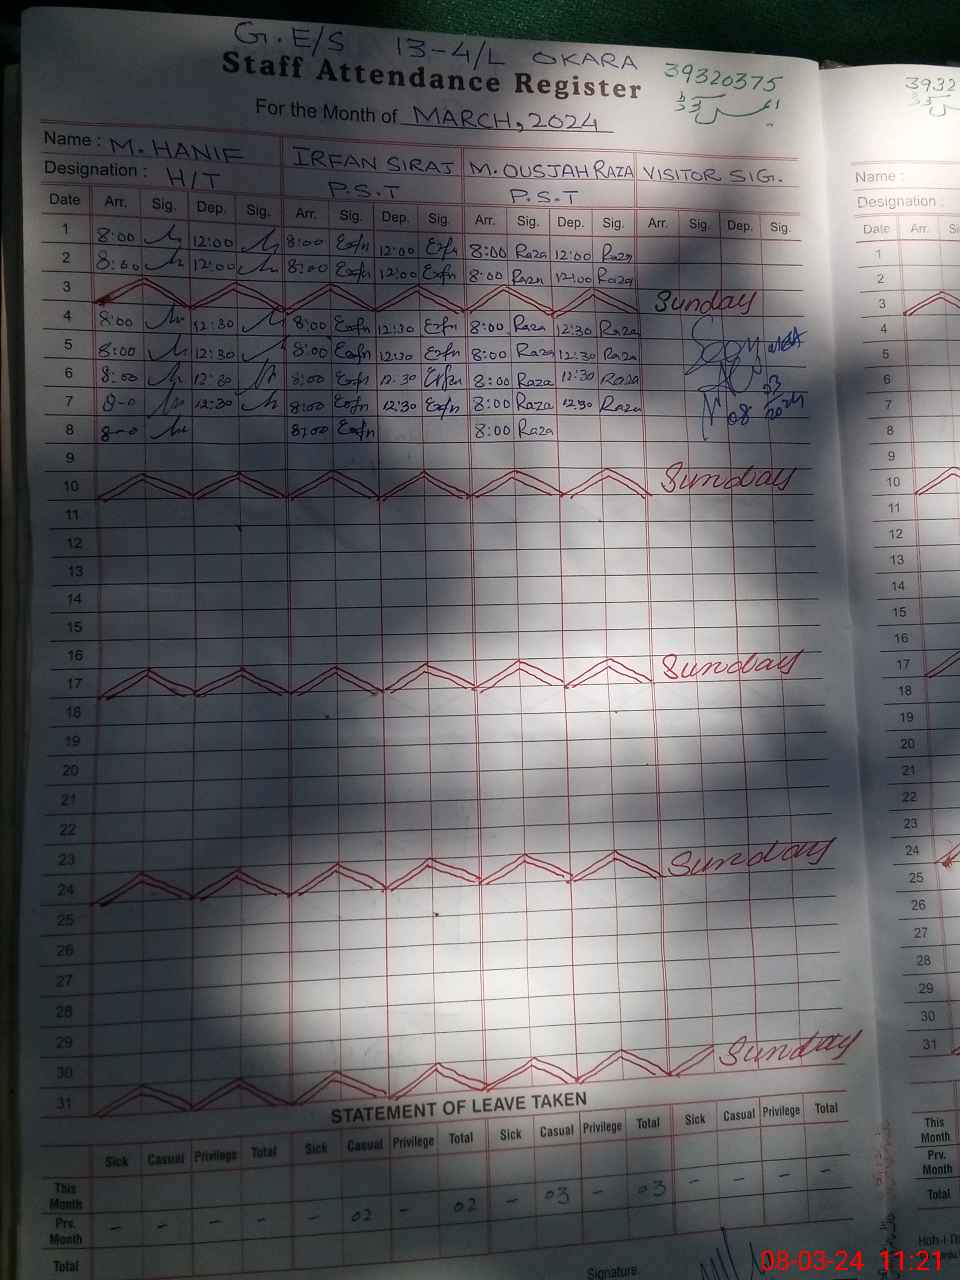 G.E/S 13-4/L OKARA
Staff Attendance Register
39320375
For the Month of MARCH, 2024
Name : M. HANIF IRFAN SIRAJ M. OUSJAH RAZA VISITOR SIG.
Designation : H/T P.S.T P.S.T
Date Arr. Sig. Dep. Sig. Arr. Sig. Dep. Sig. Arr. Sig. Dep. Sig. Arr. Sig. Dep. Sig.
1 8:00 12:00 8:00 12:00 8:00 Raza 12:00 Raza
2 8:00 12:00 8:00 12:00 8:00 Raza 12:00 Raza
3 Sunday
4 8:00 12:30 8:00 12:30 8:00 Raza 12:30 Raza
5 8:00 12:30 8:00 12:30 8:00 Raza 12:30 Raza
6 8:00 12:30 8:00 12:30 8:00 Raza 12:30 Raza
7 8-0 12:30 8:00 12:30 8:00 Raza 12:30 Raza
8 8-0 8:00 8:00 Raza
08 03 2024
9
10 Sunday
11
12
13
14
15
16
17 Sunday
18
19
20
21
22
23
24 Sunday
25
26
27
28
29
30
31 Sunday
STATEMENT OF LEAVE TAKEN
Sick Casual Privilege Total Sick Casual Privilege Total Sick Casual Privilege Total Sick Casual Privilege Total
This Month
Prv. Month - - - - - 02 - 02 - 03 - 03 - - - -
Total
Signature
3932
Name :
Designation :
Date Arr.
1
2
3
4
5
6
7
8
9
10
11
12
13
14
15
16
17
18
19
20
21
22
23
24
25
26
27
28
29
30
31
This Month
Prv. Month
Total
08-03-24 11:21